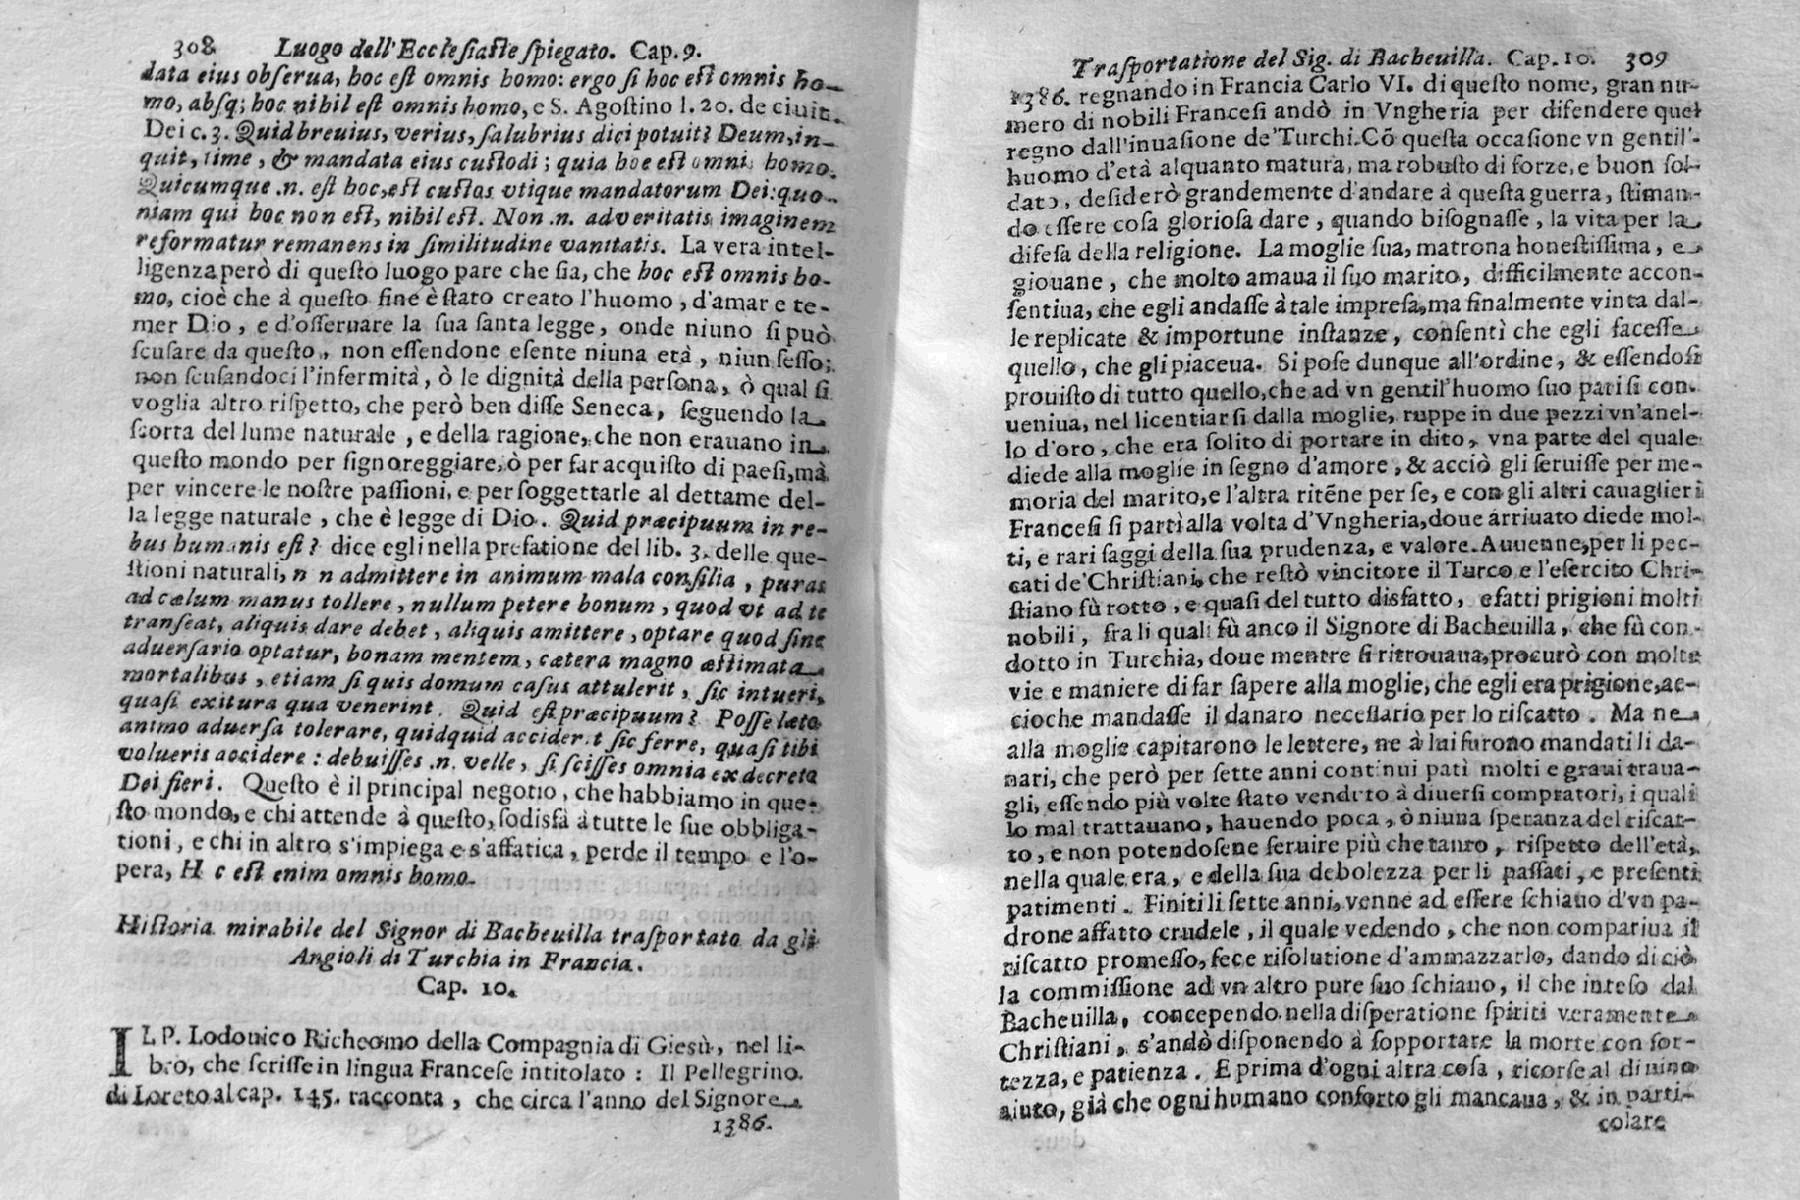 308 Luogo dell'Ecclesiaste spiegato. Cap. 9.
data eius obserua, hoc est omnis homo: ergo si hoc est omnis ho-
mo, absq; hoc nihil est omnis homo, e S. Agostino l. 20. de ciuit.
Dei c. 3. Quid breuius, verius, salubrius dici potuit? Deum, in-
quit, time, & mandata eius custodi; quia hoc est omnis homo.
Quicumque .n. est hoc, est custos vtique mandatorum Dei: quo-
niam qui hoc non est, nihil est. Non .n. ad veritatis imaginem
reformatur remanens in similitudine vanitatis. La vera intel-
ligenza però di questo luogo pare che sia, che hoc est omnis ho-
mo, cioè che à questo fine è stato creato l'huomo, d'amar e te-
mer Dio, e d'osseruare la sua santa legge, onde niuno si può
scusare da questo, non essendone esente niuna età, niun sesso;
non scusandoci l'infermità, ò le dignità della persona, ò qual si
voglia altro rispetto, che però ben disse Seneca, seguendo la
scorta del lume naturale, e della ragione, che non erauano in
questo mondo per signoreggiare, ò per far acquisto di paesi, mà
per vincere le nostre passioni, e per soggettarle al dettame del-
la legge naturale, che è legge di Dio. Quid præcipuum in re-
bus humanis est? dice egli nella prefatione del lib. 3. delle que-
stioni naturali, n n admittere in animum mala consilia, puras
ad cælum manus tollere, nullum petere bonum, quod vt ad te
transeat, aliquis dare debet, aliquis amittere, optare quod sine
aduersario optatur, bonam mentem, cætera magno æstimata
mortalibus, etiam si quis domum casus attulerit, sic intueri,
quasi exitura qua venerint. Quid est præcipuum? Posse læto
animo aduersa tolerare, quidquid accider.t sic ferre, quasi tibi
volueris accidere: debuisses .n. velle, si scisses omnia ex decreto
Dei fieri. Questo è il principal negotio, che habbiamo in que-
sto mondo, e chi attende à questo, sodisfà à tutte le sue obbliga-
tioni, e chi in altro s'impiega e s'affatica, perde il tempo e l'o-
pera, H c est enim omnis homo.
Historia mirabile del Signor di Bacheuilla trasportato da gli
Angioli di Turchia in Francia.
Cap. 10.
IL P. Lodouico Richeomo della Compagnia di Giesù, nel li-
bro, che scrisse in lingua Francese intitolato: Il Pellegrino
di Loreto al cap. 145. racconta, che circa l'anno del Signore
1386.
Trasportatione del Sig. di Bacheuilla. Cap. 10. 309
1386. regnando in Francia Carlo VI. di questo nome, gran nu-
mero di nobili Francesi andò in Vngheria per difendere quel
regno dall'inuasione de'Turchi. Cõ questa occasione vn gentil'-
huomo d'età alquanto matura, ma robusto di forze, e buon sol-
dato, desiderò grandemente d'andare à questa guerra, stiman-
do essere cosa gloriosa dare, quando bisognasse, la vita per la
difesa della religione. La moglie sua, matrona honestissima, e
giouane, che molto amaua il suo marito, difficilmente accon-
sentiua, che egli andasse à tale impresa, ma finalmente vinta dal-
le replicate & importune instanze, consentì che egli facesse
quello, che gli piaceua. Si pose dunque all'ordine, & essendosi
prouisto di tutto quello, che ad vn gentil'huomo suo pari si con-
ueniua, nel licentiarsi dalla moglie, ruppe in due pezzi vn'anel-
lo d'oro, che era solito di portare in dito, vna parte del quale
diede alla moglie in segno d'amore, & acciò gli seruisse per me-
moria del marito, e l'altra ritẽne per se, e con gli altri cauaglieri
Francesi si partì alla volta d'Vngheria, doue arriuato diede mol-
ti, e rari saggi della sua prudenza, e valore. Auuenne, per li pec-
cati de'Christiani, che restò vincitore il Turco e l'esercito Chri-
stiano fù rotto, e quasi del tutto disfatto, e fatti prigioni molti
nobili, fra li quali fù anco il Signore di Bacheuilla, che fù con-
dotto in Turchia, doue mentre si ritrouaua, procurò con molte
vie e maniere di far sapere alla moglie, che egli era prigione, ac-
cioche mandasse il danaro necessario per lo riscatto. Ma ne
alla moglie capitarono le lettere, ne à lui furono mandati li da-
nari, che però per sette anni continui patì molti e graui traua-
gli, essendo più volte stato venduto à diuersi compratori, i quali
lo mal trattauano, hauendo poca, ò niuna speranza del riscat-
to, e non potendosene seruire più che tanto, rispetto dell'età,
nella quale era, e della sua debolezza per li passati, e presenti
patimenti. Finiti li sette anni, venne ad essere schiauo d'vn pa-
drone affatto crudele, il quale vedendo, che non compariua il
riscatto promesso, fece risolutione d'ammazzarlo, dando di ciò
la commissione ad vn altro pure suo schiauo, il che inteso dal
Bacheuilla, concependo nella disperatione spiriti veramente
Christiani, s'andò disponendo à sopportare la morte con for-
tezza, e patienza. E prima d'ogni altra cosa, ricorse al diuino
aiuto, già che ogni humano conforto gli mancaua, & in parti-
colare